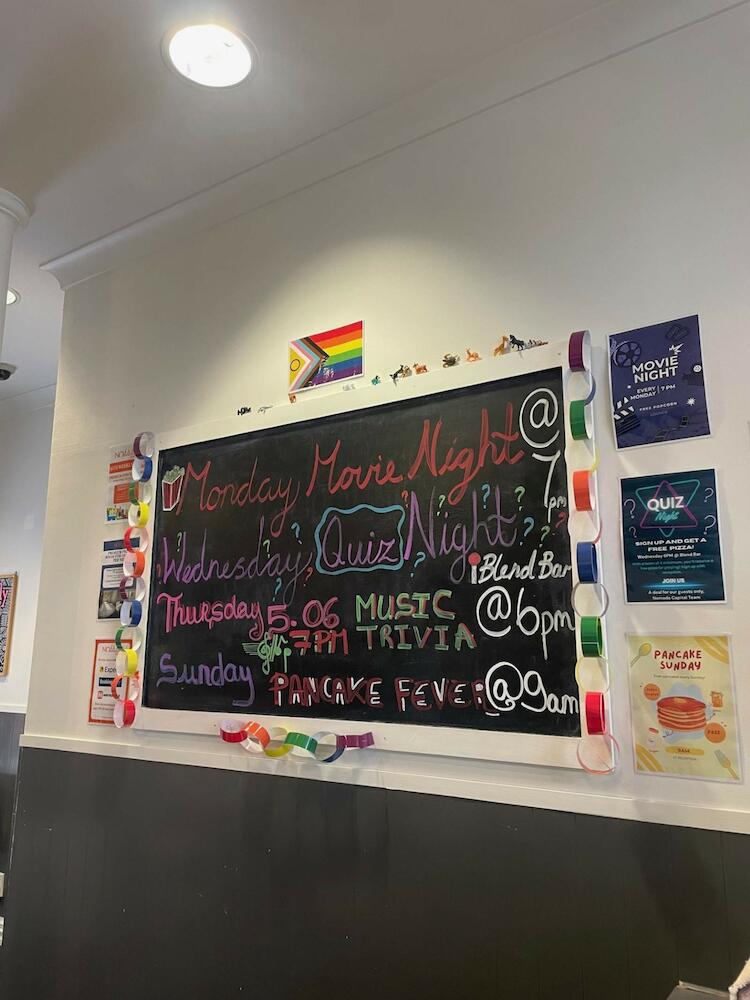 Monday Movie Night @
7pm
Wednesday Quiz Night
Blend Bar
@6pm
Thuursday 5.06 MUSIC
7PM TRIVIA
Sunday PANCAKE FEVER @9am
MOVIE
NIGHT
EVERY
MONDAY | 7 PM
FREE POPCORN
QUIZ
Night
SIGN UP AND GET A
FREE PIZZA!
Wednesday 6PM @ Blend Bar
JOIN US
A deal for our guests only,
Nomads Capital Team
PANCAKE
SUNDAY
Free pancakes every Sunday!
FREE
9AM